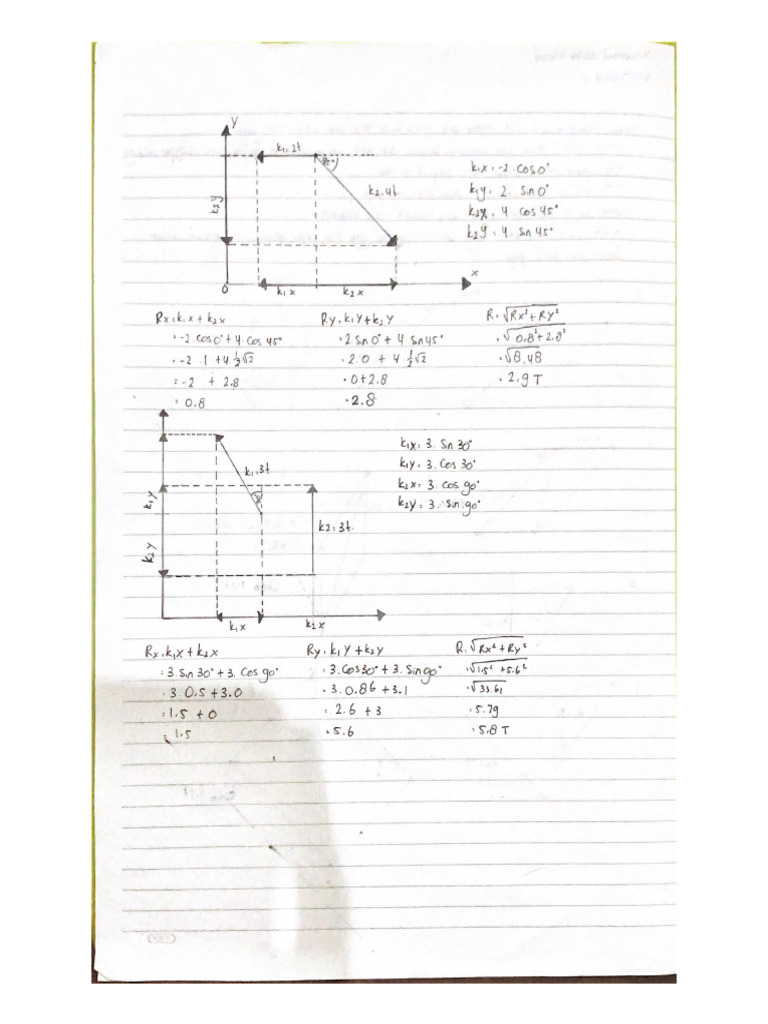 y
k₁=2t
45°
k₂=4t
k₂y
k₁x = -2 . cos 0°
k₁y = 2 . Sin 0°
k₂x = 4 . cos 45°
k₂y = 4 . Sn 45°
x
0
k₁x
k₂x
Rx = k₁x + k₂x
= -2 cos 0° + 4 . Cos 45°
= -2 . 1 + 4 . ½√2
= -2 + 2.8
= 0.8
Ry = k₁y + k₂y
= 2 Sn 0° + 4 Sn 45°
= 2.0 + 4 . ½√2
= 0 + 2.8
= 2.8
R = √Rx² + Ry²
= √0.8² + 2.8²
= √8,48
= 2.9 T
k₁=3t
k₁y
k₂y
k2=3t
k₁x
k₂x
k₁x = 3. Sn 30°
k₁y = 3. Cos 30°
k₂x = 3. cos 90°
k₂y = 3. Sin 90°
Rx = k₁x + k₂x
= 3. Sin 30° + 3. Cos 90°
= 3 0.5 + 3.0
= 1.5 + 0
= 1.5
Ry = k₁y + k₂y
= 3. Cos 30° + 3. Sin 90°
= 3. 0.86 + 3.1
= 2.6 + 3
= 5.6
R = √Rx² + Ry²
= √1.5² + 5.6²
= √33.61
= 5.79
= 5.8 T